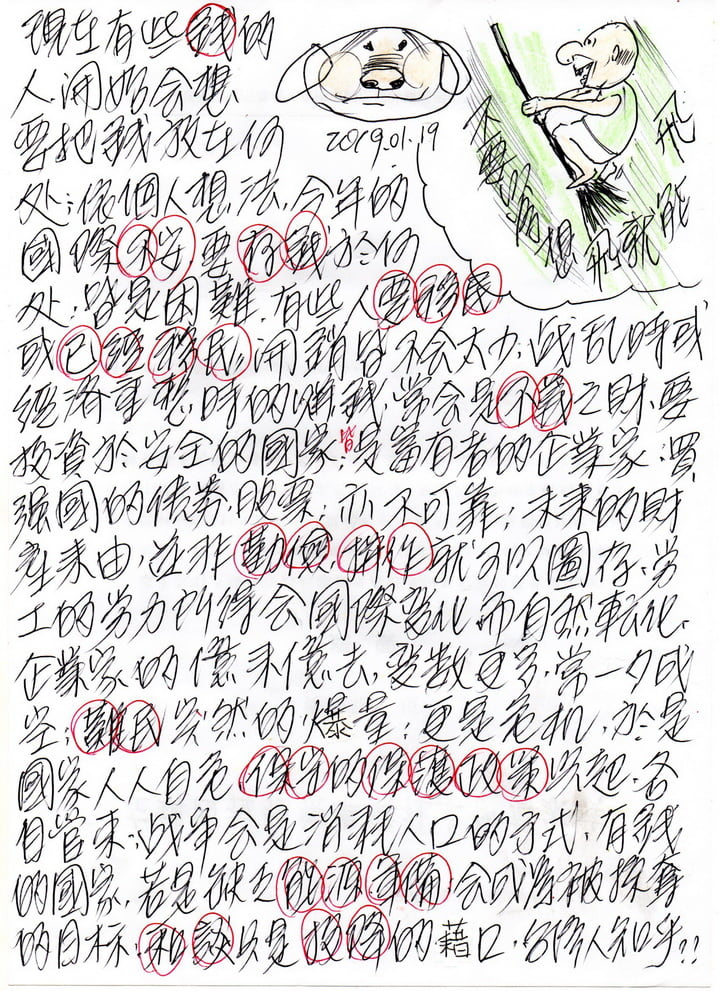 現在有些錢的
人,開始会想
要把錢放在何
处;依個人想法,今年的
國際不安要存錢於何
处;皆是困難,有些人要移民
或已經移民,開銷皆不会太少;战乱時或
經濟重整時的賺錢,常会是不義之財,要
投資於安全的國家;皆是富有者的企業家;買
强國的債券,股票;亦不可靠;未來的財
產來由,並非勤儉,耕作就可以圖存,勞
工的勞力所得会國際變化而自然転化,
企業家的億來億去,變数更多,常一夕成
空;難民突然的爆量;更是危机;於是
國家人人自危 保守的保護政策興起,各
自管束;战争会是消耗人口的方式,有錢
的國家,若是缺乏能源軍備,会成為被掠奪
的目标;和談只是投降的藉口,路人知乎!!
2019.01.19
想飛就能
飛